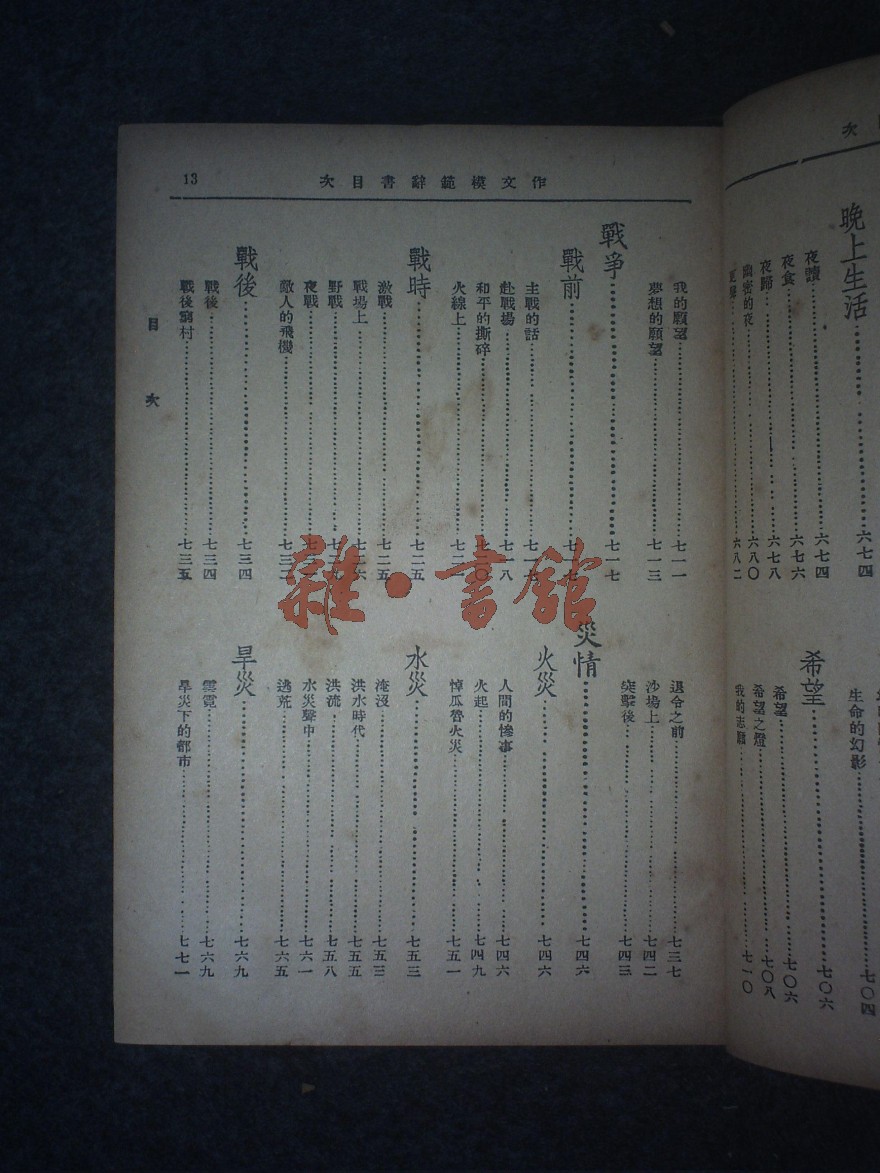 次
晚上生活……六七四
夜讀……六七四
夜食……六七六
夜歸……六七八
幽密的夜……六八〇
六八二
生命的幻影……七〇四
希望……七〇六
希望……七〇六
希望之燈……七〇八
我的志願……七一〇
作文模範辭書目次
13
我的願望……七一一
夢想的願望……七一三
戰爭……七一七
戰前
主戰的話
赴戰場……七一八
和平的撕碎
火線上
戰時……七二五
激戰……七二五
戰場上
野戰
夜戰
敵人的飛機……七三二
戰後……七三四
戰後……七三四
戰後窮村……七三五
退令之前……七三七
沙場上……七四二
突擊後……七四三
災情……七四六
火災……七四六
人間的慘事……七四六
火起……七四九
悼瓜魯火災……七五一
水災……七五三
淹沒……七五三
洪水時代……七五五
洪流……七五八
水災聲中……七六一
逃荒……七六五
旱災……七六九
雲霓……七六九
旱災下的都市……七七一
目次
雜·書館